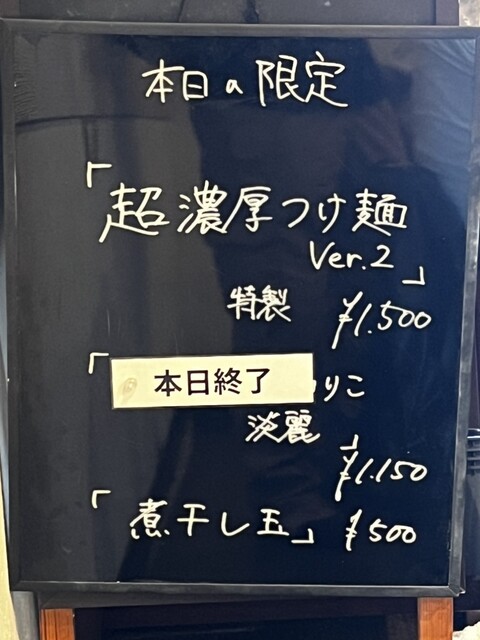 本日の限定
「超濃厚つけ麺
Ver.2」
特製 ¥1.500
「本日終了りこ
淡麗」
¥1.150
「煮干し玉」 ¥500